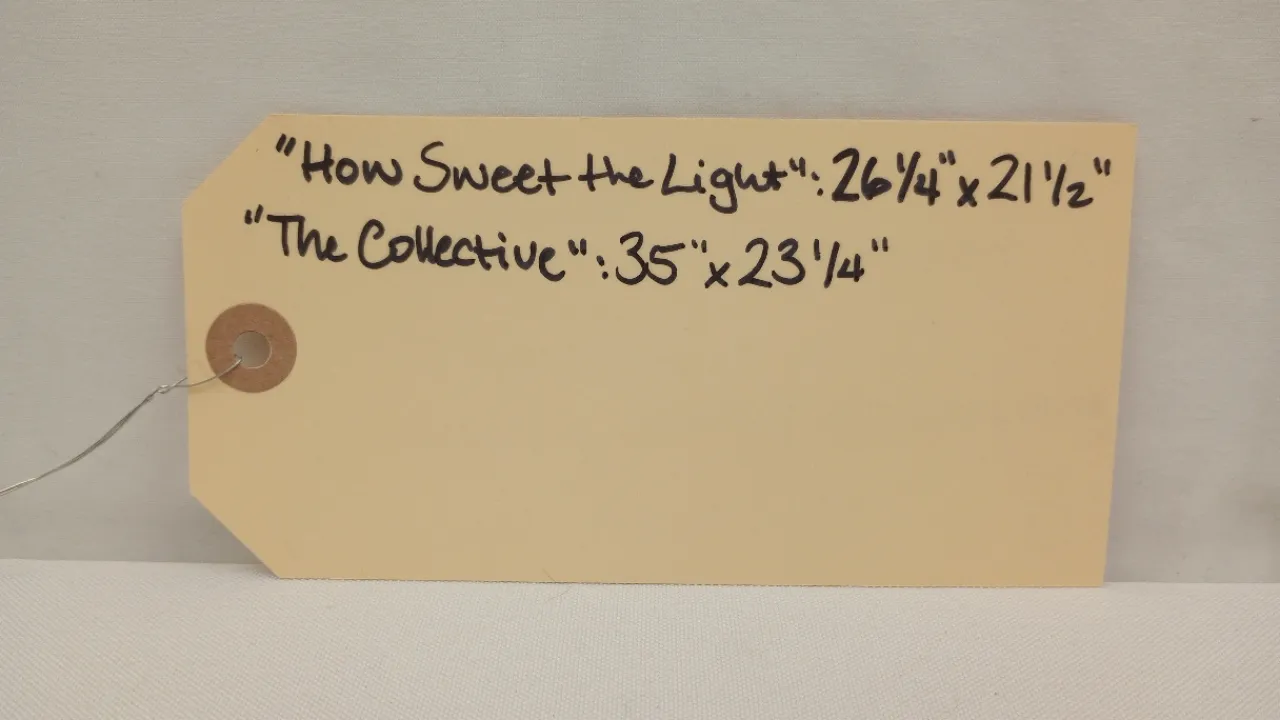 "How Sweet the Light": 26 1/4" x 21 1/2"
"The Collective": 35" x 23 1/4"